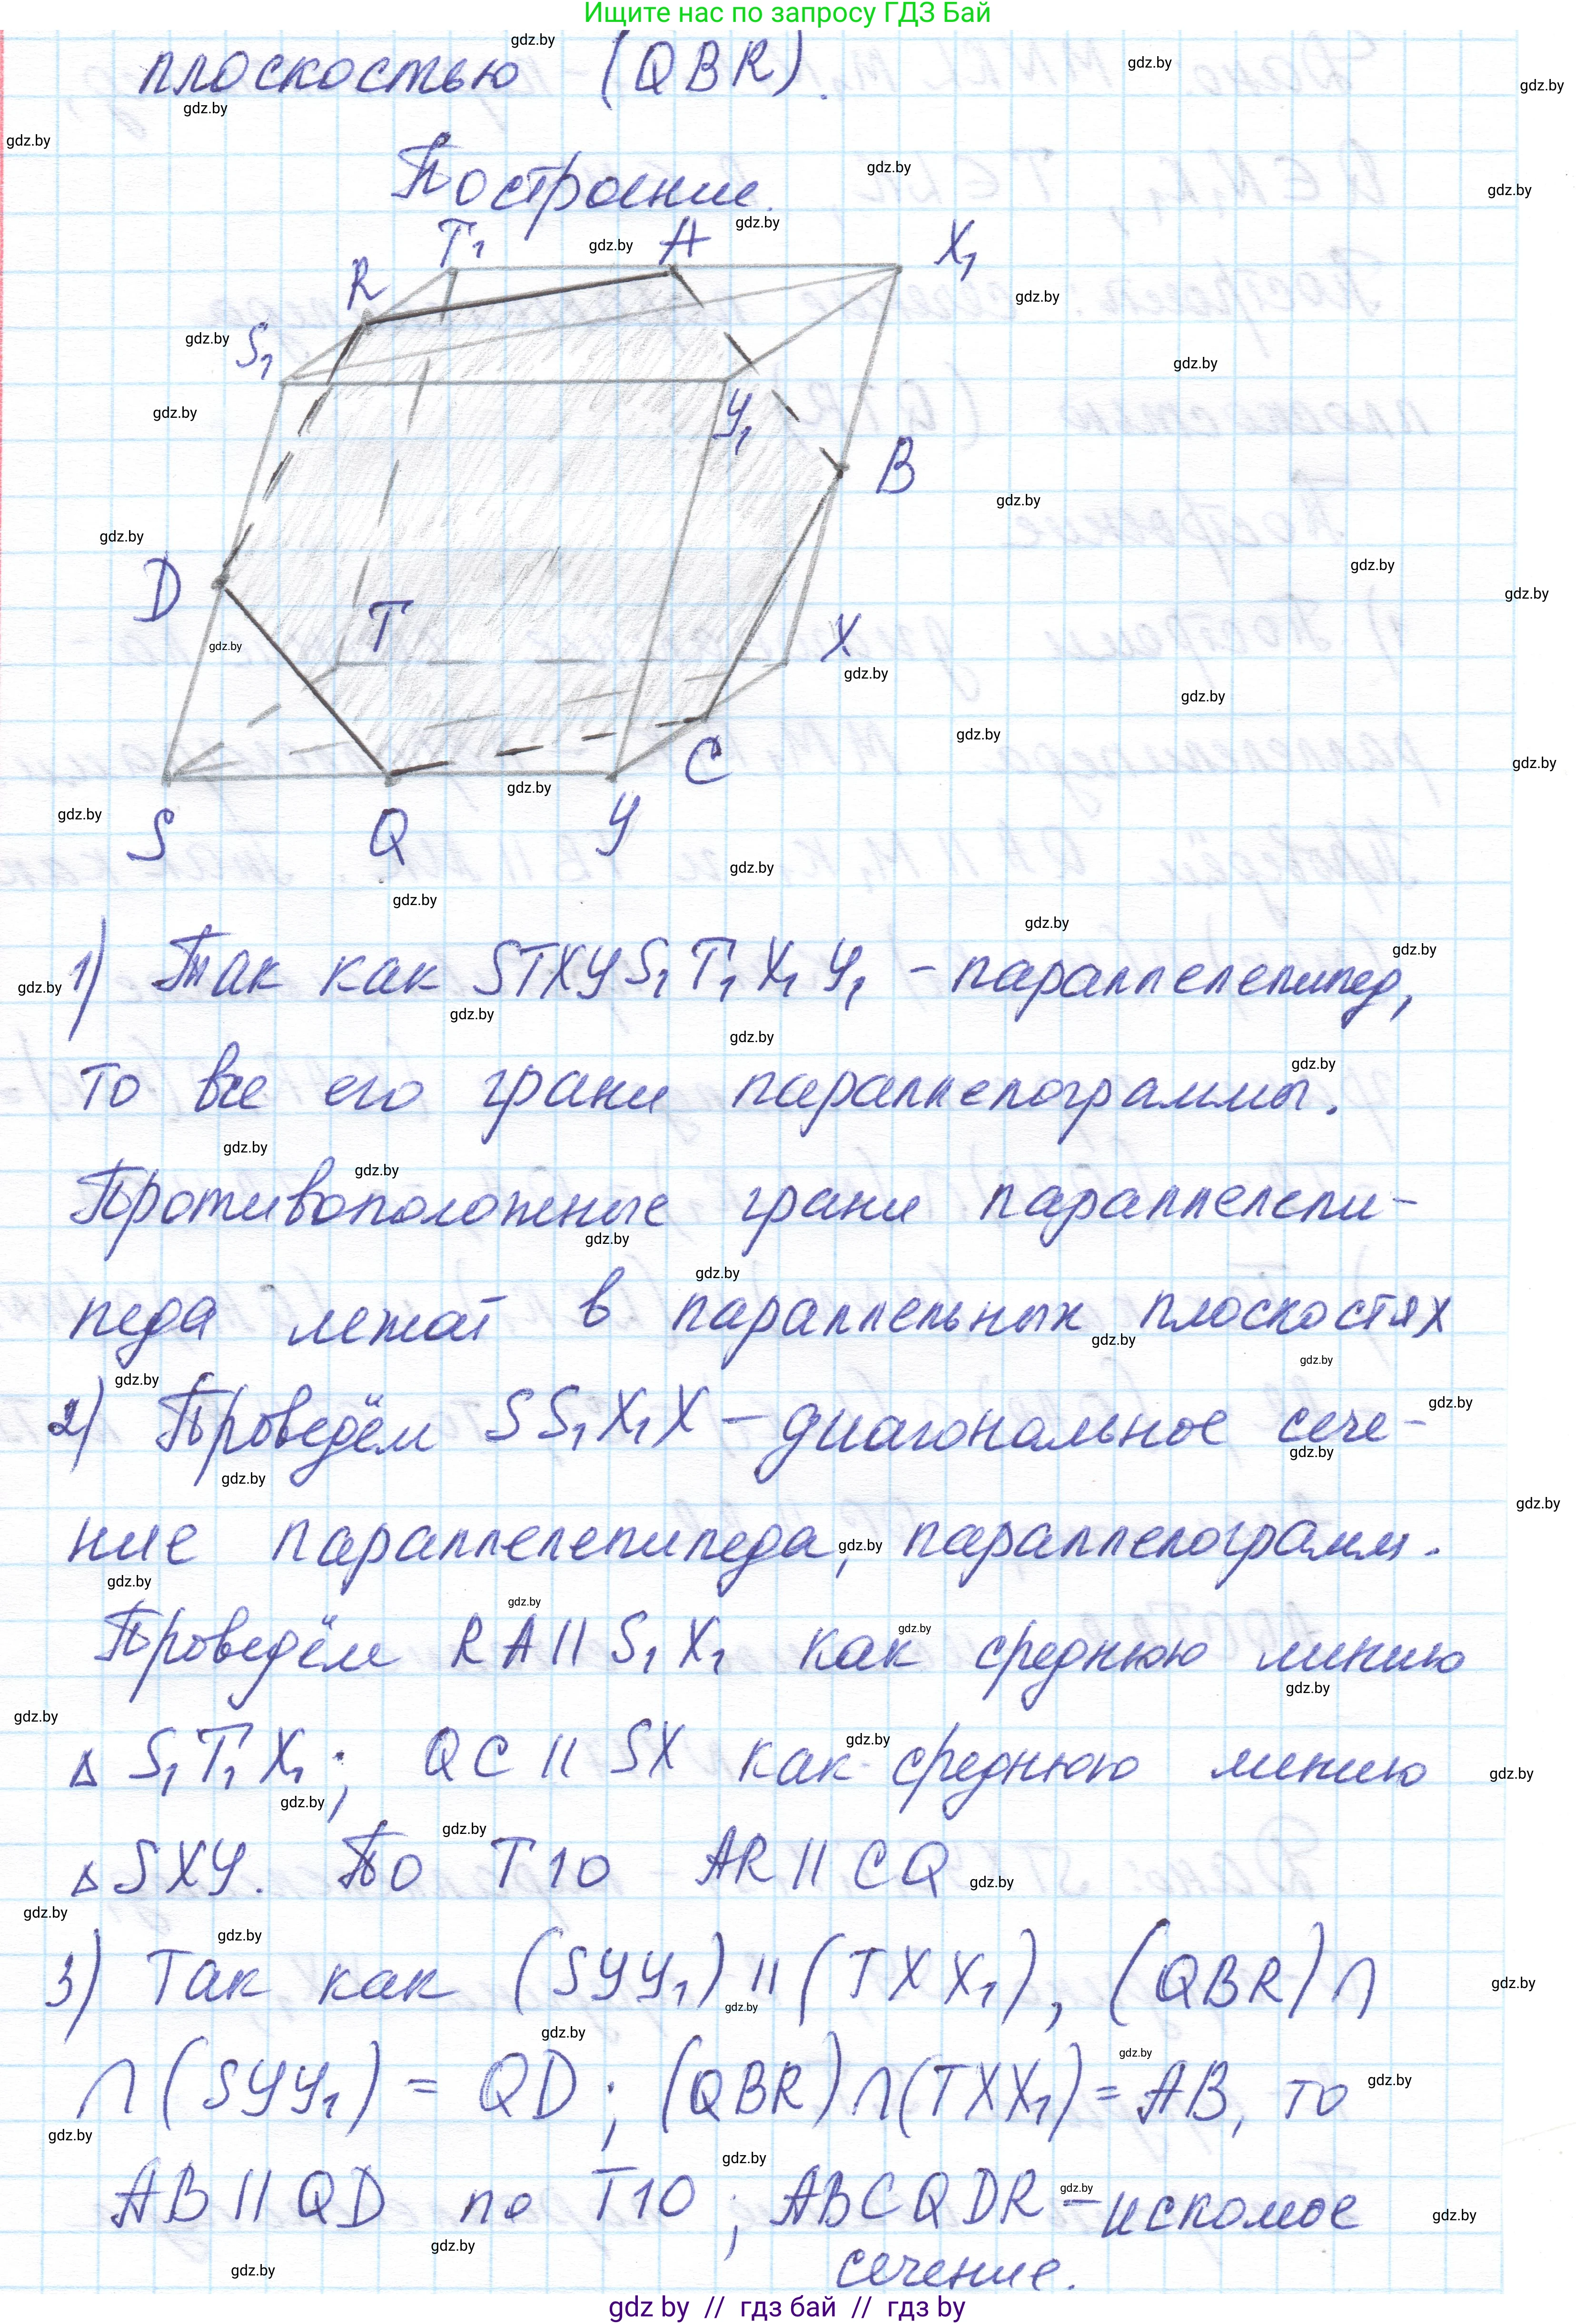 Ищите нас по запросу ГДЗ Бай
плоскостью (QBR).
Построение.
T₁ A X₁
R
S₁
У₁
B
D
T
X
C
S Q У
1) Так как STXУS₁T₁X₁У₁ - параллелепипед,
то все его грани параллелограммы.
Противоположные грани параллелепи-
педа лежат в параллельных плоскостях
2) Проведём SS₁X₁X - диагональное сече-
ние параллелепипеда, параллелограмм.
Проведём RA || S₁X₁ как среднюю линию
Δ S₁T₁X₁; QC || SX как среднюю линию
Δ SXУ. По Т10 AR || CQ
3) Так как (SУУ₁) || (TXX₁), (QBR) ∩
∩ (SУУ₁) = QD; (QBR) ∩ (TXX₁) = AB, то
AB || QD по Т10; ABCQDR - искомое
сечение.
gdz by // гдз бай // гдз by